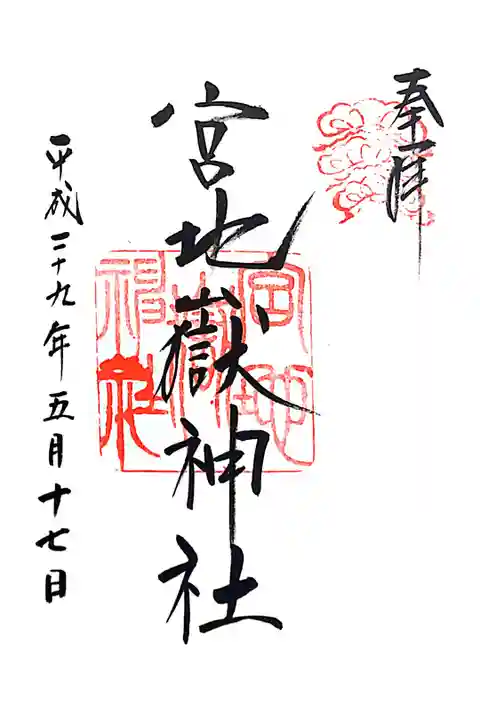 奉拝
宮地嶽神社
宮地嶽神社
平成二十九年五月十七日